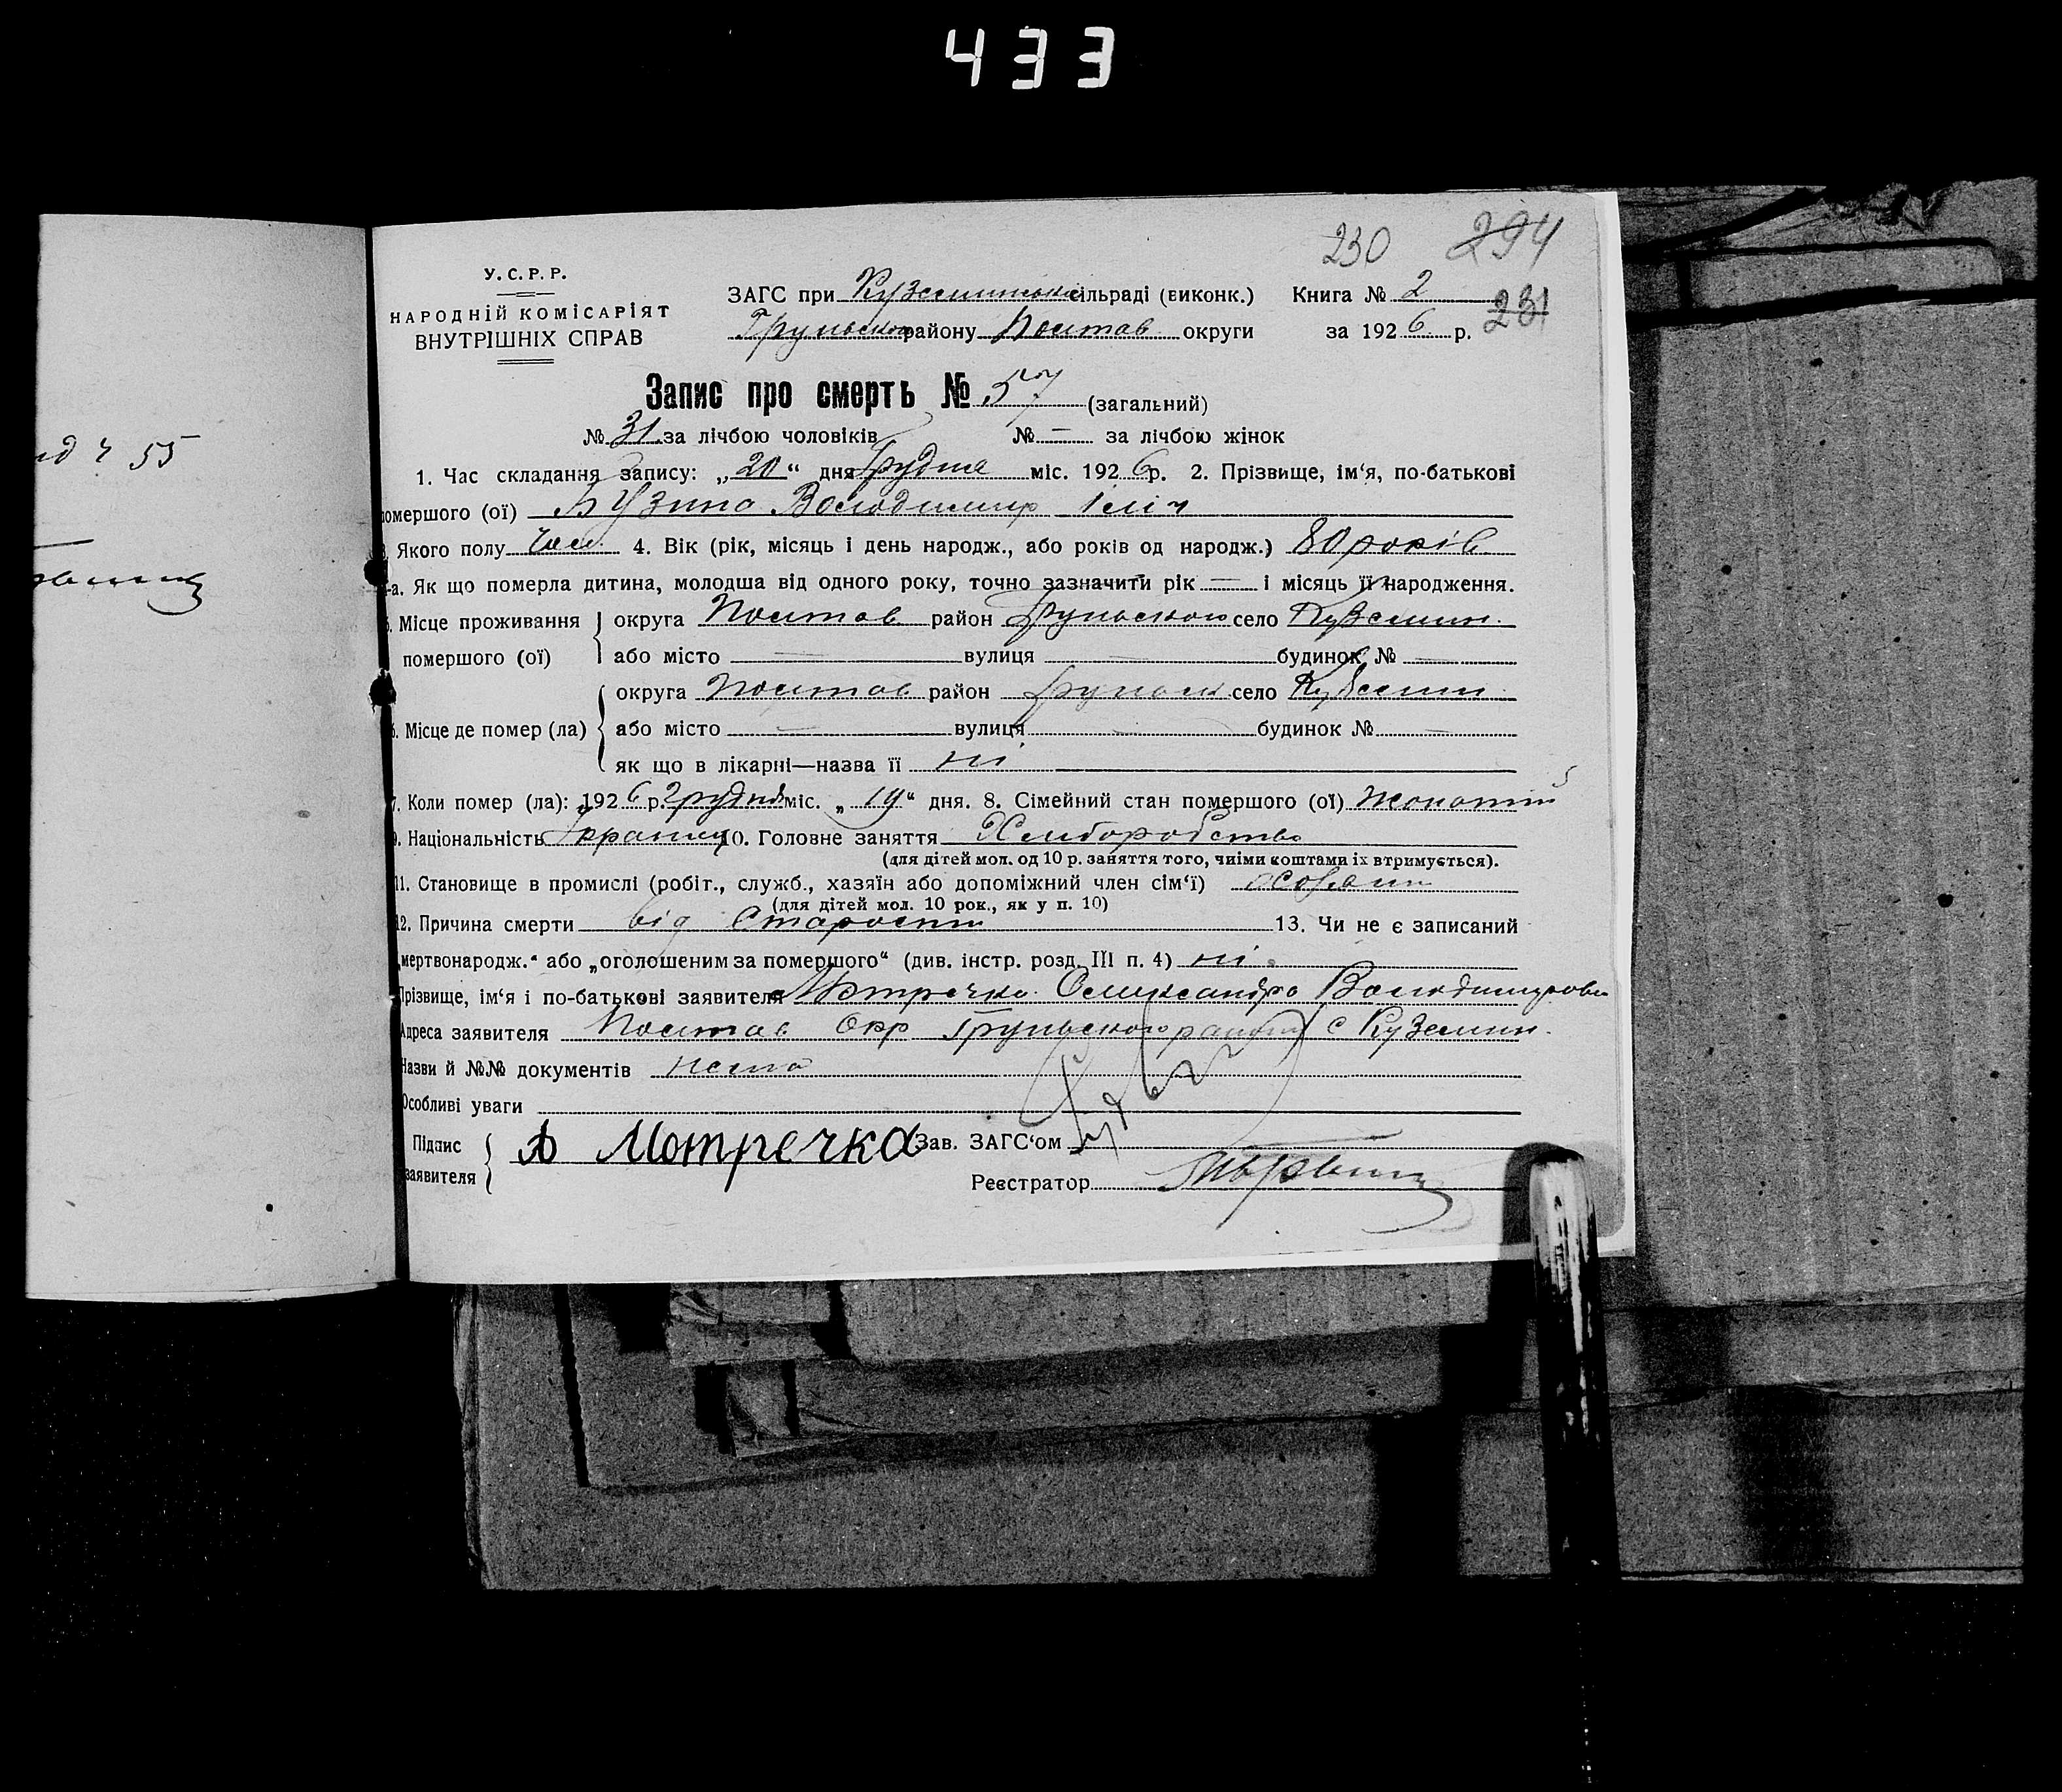 433
230 294
У.С.Р.Р.
НАРОДНІЙ КОМІСАРІЯТ
ВНУТРІШНІХ СПРАВ
ЗАГС при Куземинській сільраді (виконк.) Книга № 2
231
Грунського району Полтав. округи за 1926 р.
Запис про смерть № 57 (загальний)
№ 31 за лічбою чоловіків № — за лічбою жінок
1. Час складання запису: „20“ дня Грудня міс. 1926 р. 2. Прізвище, ім‘я, по-батькові
помершого (ої) Бузина Володимир Ілліч
Якого полу Чол. 4. Вік (рік, місяць і день народж., або років од народж.) 80 років
-а. Як що померла дитина, молодша від одного року, точно зазначити рік — і місяць її народження.
5. Місце проживання помершого (ої) округа Полтав район Грунського село Куземин.
або місто — вулиця — будинок № —
6. Місце де помер (ла) округа Полтав район Грунськ село Куземин
або місто — вулиця — будинок № —
як що в лікарні—назва її ні
7. Коли помер (ла): 1926 р. Грудня міс. „19“ дня. 8. Сімейний стан помершого (ої) Жонатий
9. Національність Украинец 10. Головне заняття Хліборобство
(для дітей мол. од 10 р. заняття того, чиїми коштами їх втримується).
11. Становище в промислі (робіт., служб., хазяїн або допоміжний член сім‘ї) хозяин
(для дітей мол. 10 рок., як у п. 10)
12. Причина смерти від старости 13. Чи не є записаний
„мертвонародж.“ або „оголошеним за помершого“ (див. інстр. розд. III п. 4) ні.
Прізвище, ім‘я і по-батькові заявителя Мотречко Олександра Володимирова
Адреса заявителя Полтав Окр Грунського району с Куземин.
Назви й №№ документів нема
Особливі уваги
Підпис заявителя А Мотречка Зав. ЗАГС‘ом
Реєстратор
ч 55